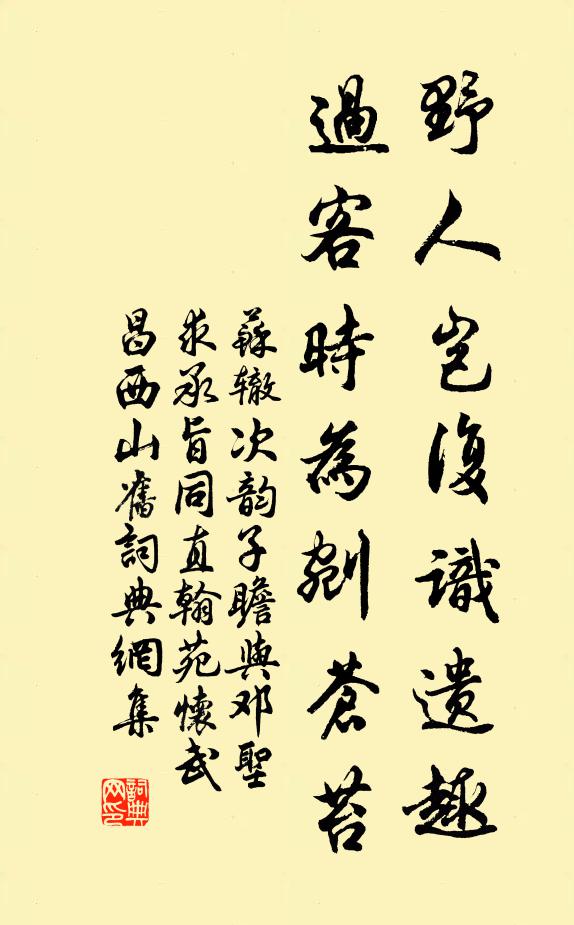 野人岂復識遗趣
過客時為剜蒼苔
蘇辙次韵子瞻與邓聖
求承旨同直翰苑懷武
昌西山舊詞典網集
詞典
网印